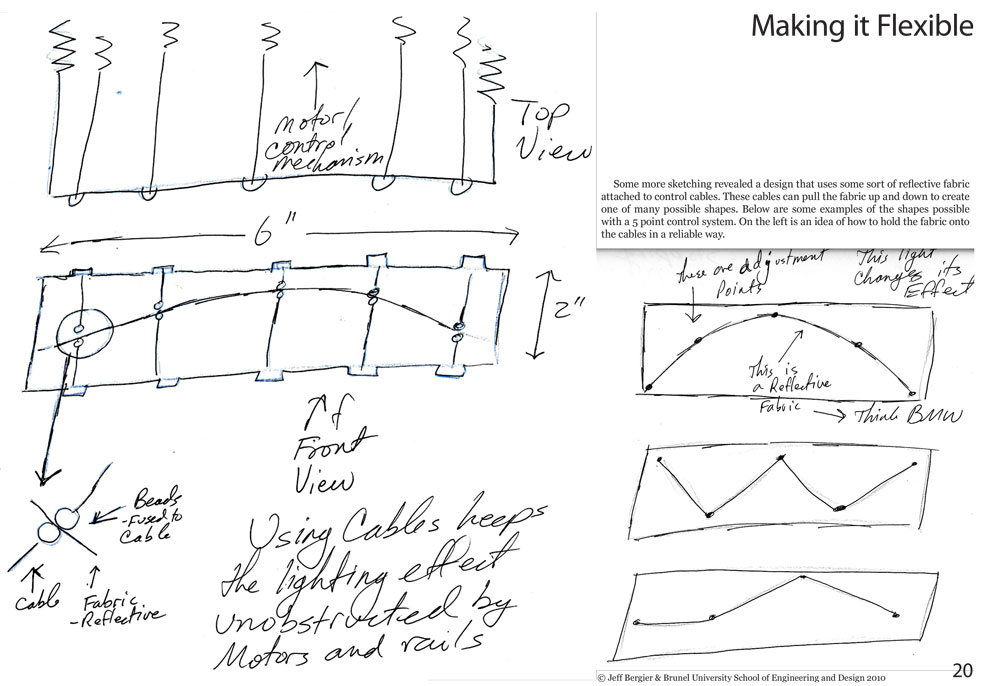 Making it Flexible
Motor/
control
mechanism
Top
View
6"
2"
Front
View
Beads
-Fused to
Cable
Cable
Fabric
-Reflective
Using Cables keeps
the lighting effect
unobstructed by
Motors and rails
Some more sketching revealed a design that uses some sort of reflective fabric
attached to control cables. These cables can pull the fabric up and down to create
one of many possible shapes. Below are some examples of the shapes possible
with a 5 point control system. On the left is an idea of how to hold the fabric onto
the cables in a reliable way.
These are adjustment
Points
This light
Changes its
Effect
This is
a Reflective
Fabric
Think BMW
20
© Jeff Bergier & Brunel University School of Engineering and Design 2010